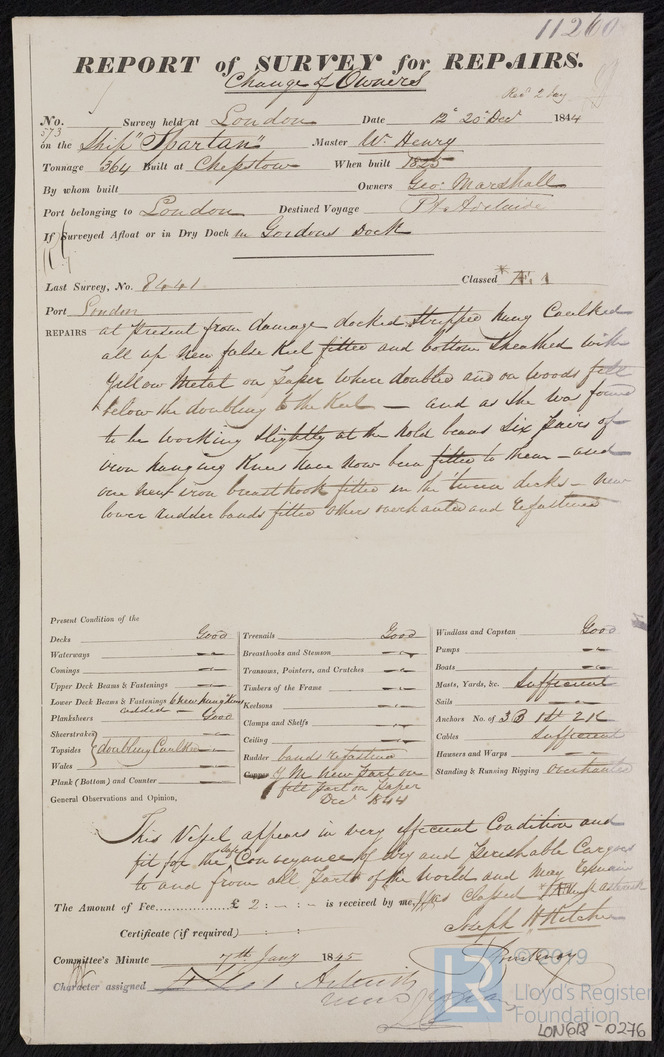 11260
REPORT of SURVEY for REPAIRS.
Change of Owners
Rec 2 Jay
No. 573 Survey held at London Date 12 & 20 Decr 1844
on the Ship "Spartan" Master Wm Henry
Tonnage 364 Built at Chepstow When built 1825
By whom built Owners Geo: Marshall
Port belonging to London Destined Voyage Pt. Adelaide
If Surveyed Afloat or in Dry Dock in Gordons Dock
Last Survey, No. 8441 Classed * Æ. 1
Port London
REPAIRS at present from damage docked stripped hung Caulked
all up new false Keel fitted and bottom Sheathed with
Yellow Metal on paper where doubled and on woods felt
below the doubling to the Keel — and as she was found
to be working slightly at the hold beams Six pairs of
iron hanging Knees have now been fitted to them — and
one new iron breasthook fitted in the tween decks — new
lower rudder bands fitted others overhauled and refastened
Present Condition of the
Decks Good
Waterways
Comings
Upper Deck Beams & Fastenings
Lower Deck Beams & Fastenings 6 new hang Knees
added
Planksheers Good
Sheerstrakes
Topsides doubling Caulked
Wales
Plank (Bottom) and Counter
Treenails Good
Breasthooks and Stemson
Transoms, Pointers, and Crutches
Timbers of the Frame
Keelsons
Clamps and Shelfs
Ceiling
Rudder bands refastened
Copper Y M new part on
felt part on paper
Decr 1844
Windlass and Capstan Good
Pumps
Boats
Masts, Yards, &c. Sufficient
Sails
Anchors No. of 3 B 1 St 2 K
Cables Sufficient
Hawsers and Warps
Standing & Running Rigging overhauled
General Observations and Opinion,
This Vessel appears in very efficient Condition and
fit for the safe Conveyance of dry and perishable Cargoes
to and from all parts of the World and may remain
as Classed
The Amount of Fee £ 2 : - : - is received by me,
Joseph H Ritchie
Certificate (if required) : :
Committee's Minute 7th Jany 1845
Character assigned
© 2019
LR
Lloyd's Register
Foundation
LON618-0276